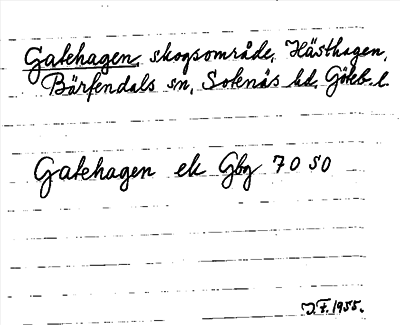 Galehagen, skogsområde, Hästhagen,
Bärfendals sn, Sotenäs hd. Göteb. l.
Galehagen ek Gbg 7 0 S0
J.F. 1955.